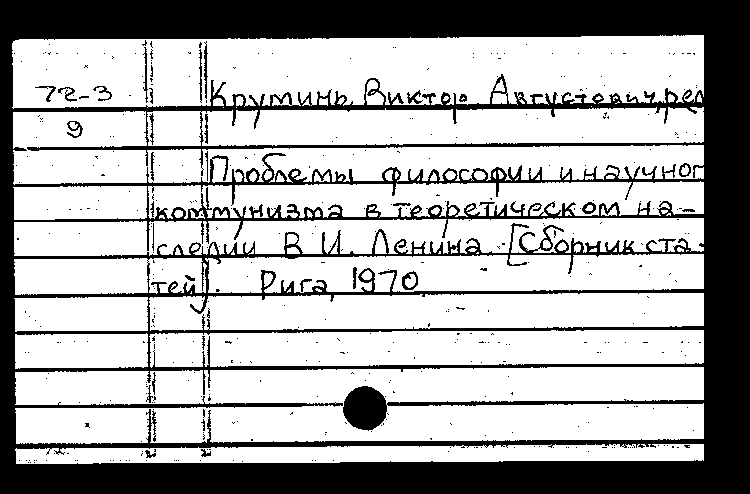 72-3
9
Круминь, Виктор Августович, ред
Проблемы философии и научног
коммунизма в теоретическом на-
следии В. И. Ленина. [Сборник ста-
тей]. Рига, 1970.